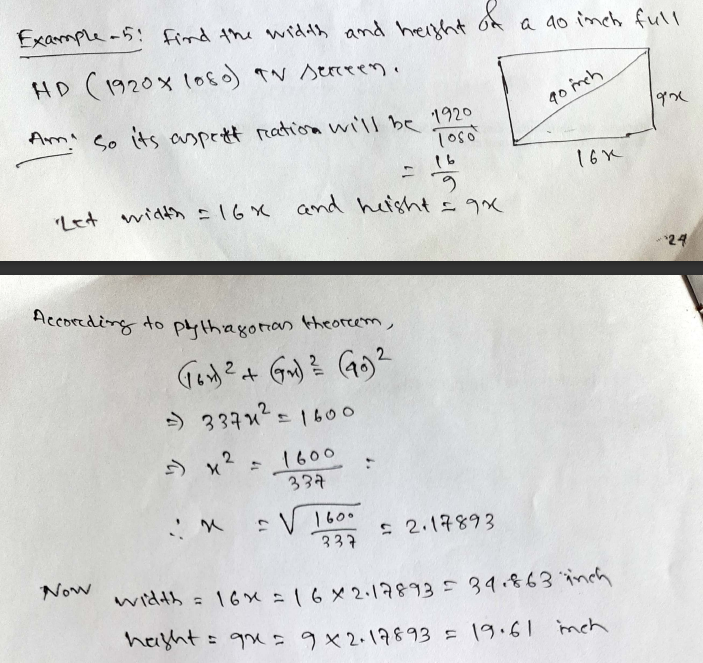 Example-5: Find the width and height of a 40 inch full
HD (1920 x 1080) TV screen.
40 inch
9x
16x
Ans: So its aspect ration will be 1920/1080
= 16/9
Let width = 16x and height = 9x
24
According to pythagorian theorem,
(16x)² + (9x)² = (40)²
⇒ 337x² = 1600
⇒ x² = 1600/337 =
∴ x = √1600/337 = 2.17893
Now width = 16x = 16 x 2.17893 = 34.863 inch
height = 9x = 9 x 2.17893 = 19.61 inch